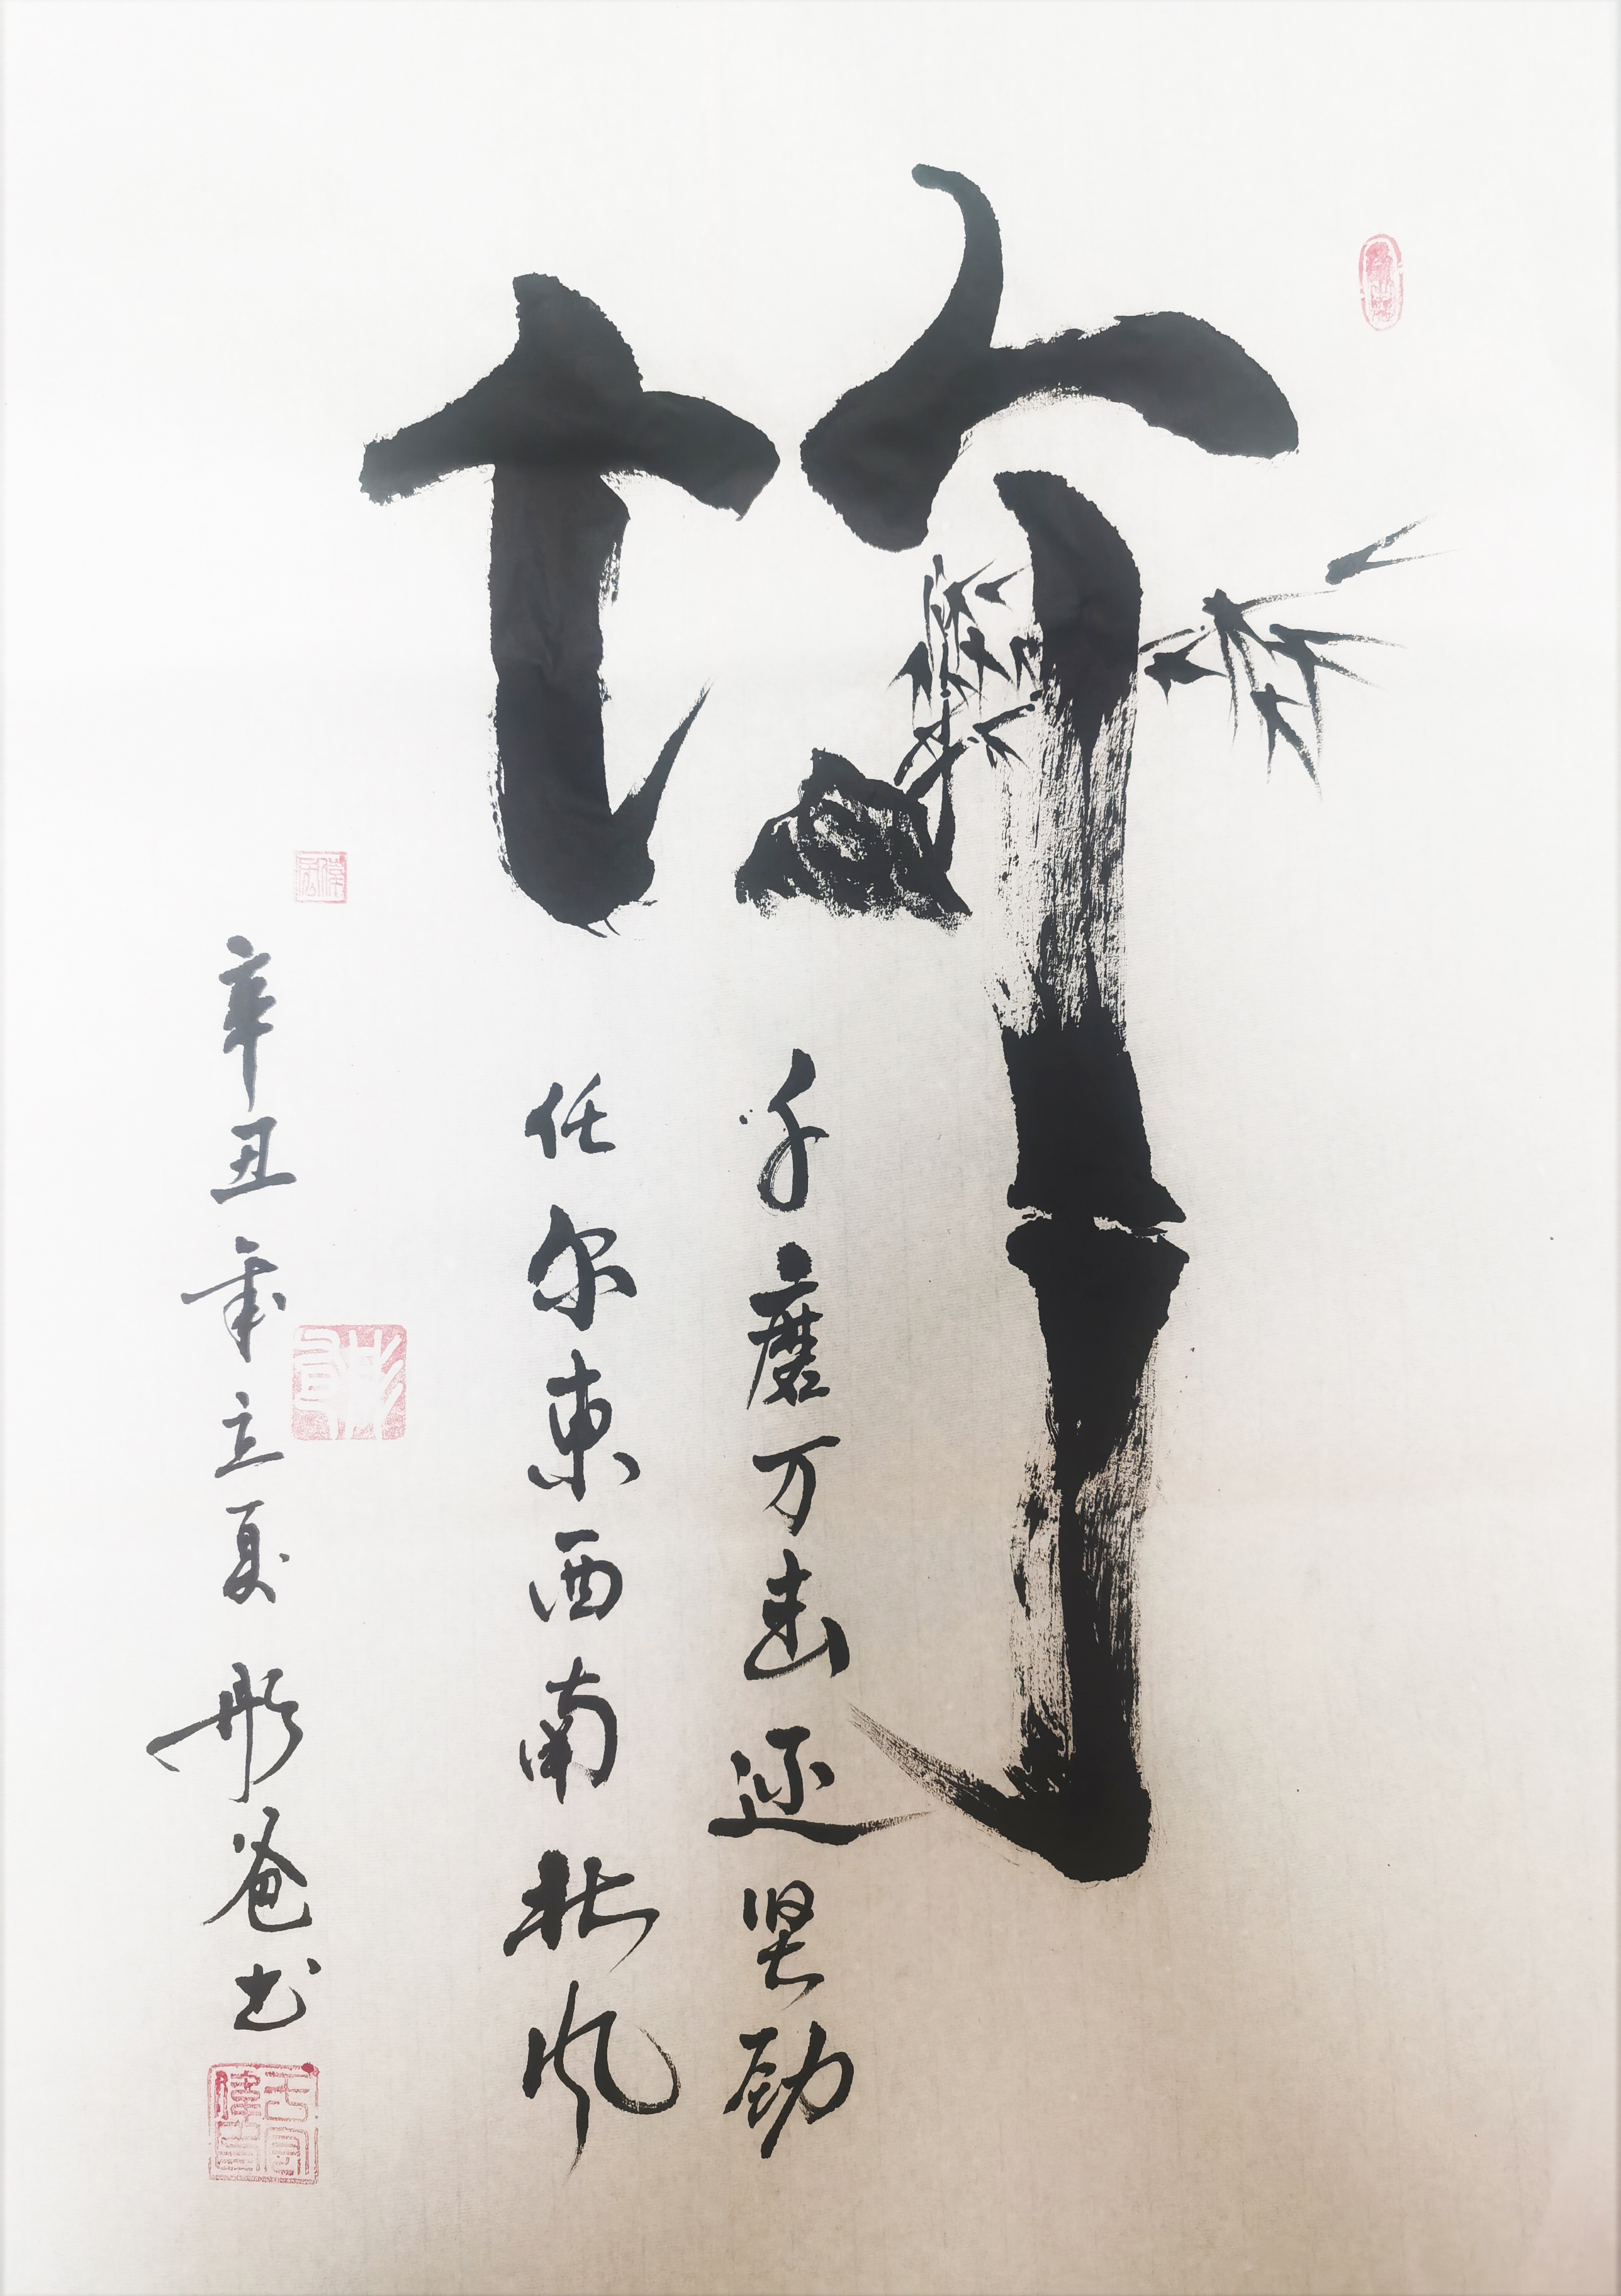 竹
千磨万击还坚劲
任尔东西南北风
辛丑年立夏 彤爸书